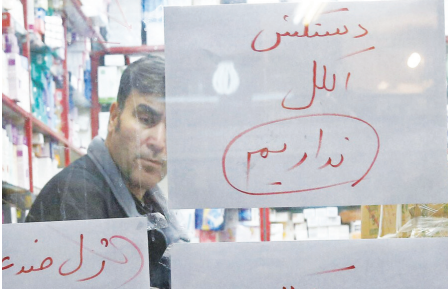 دستکش
الکل
نداریم
ژل ضد